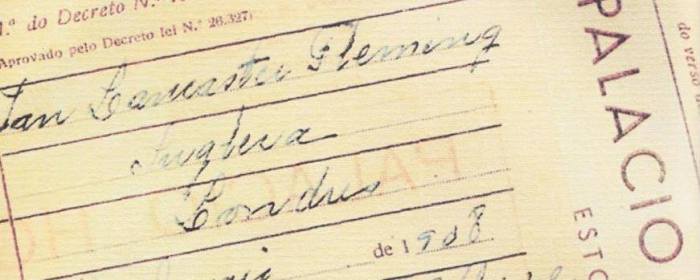 1.º do Decreto N.º
Aprovado pelo Decreto lei N.º 26.327
Ian Lancaster Fleming
Inglesa
Londres
de 1908
PALACIO
EST
do verso